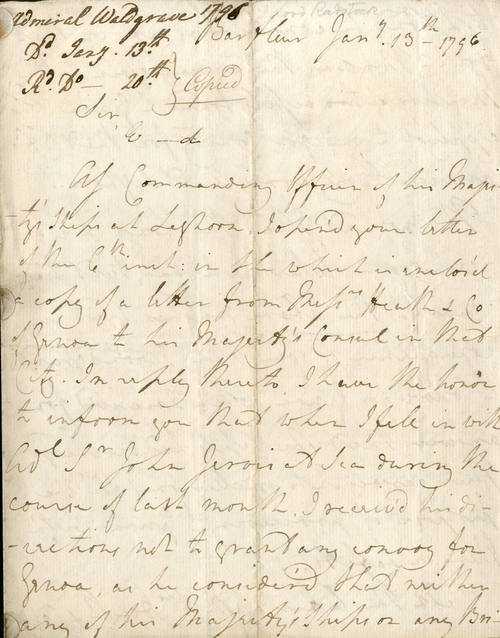 Admiral Waldgrave 1796
Lord Radstock
Barfleur Jany. 13th 1796
Dd. Jany. 13th
Rd. Do — 20th } Copied
Sir
As Commanding Officer of his Majes-
-ty's Ships at Leghorn, I open'd your letter
of the 6th inst: in the which is enclos'd
a copy of a letter from Messrs Heath & Co
of Genoa to his Majesty's Consul in that
City. In reply thereto, I have the honor
to inform you that when I fell in with
Adl Sr John Jervis at Sea during the
course of last month, I receiv'd his di-
-rections not to grant any convoy for
Genoa, as he consider'd that neither
any of his Majesty's Ships or any Bri-